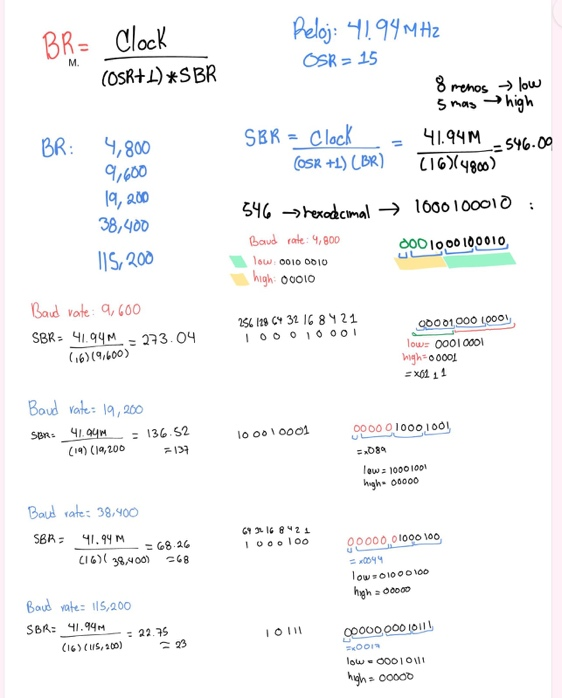 BR = Clock
M.
(OSR+1) * SBR
Reloj: 41.94MHz
OSR = 15
8 menos → low
5 mas → high
BR: 4,800
9,600
19,200
38,400
115,200
SBR = Clock = 41.94M = 546.09
(OSR +1) (BR) (16)(4800)
546 → hexadecimal → 1000100010 :
Baud rate: 4,800
low: 0010 0010
high: 00010
0001000100010
Baud rate: 9,600
SBR = 41.94M = 273.04
(16)(9,600)
256 128 64 32 16 8 4 2 1
1 0 0 0 1 0 0 0 1
0000100010001
low= 00010001
high= 00001
= x0111
Baud rate: 19,200
SBR= 41.94M = 136.52
(19)(19,200 = 137
100010001
0000010001001
=x089
low = 10001001
high= 00000
Baud rate: 38,400
SBR = 41.94 M = 68.26
(16)( 38,400) =68
64 32 16 8 4 2 1
1 0 0 0 1 0 0
0000001000100
= x0044
low = 01000100
high = 00000
Baud rate: 115,200
SBR= 41.94M = 22.75
(16)(115,200) = 23
10111
0000000010111
=x0017
low = 00010111
high = 00000